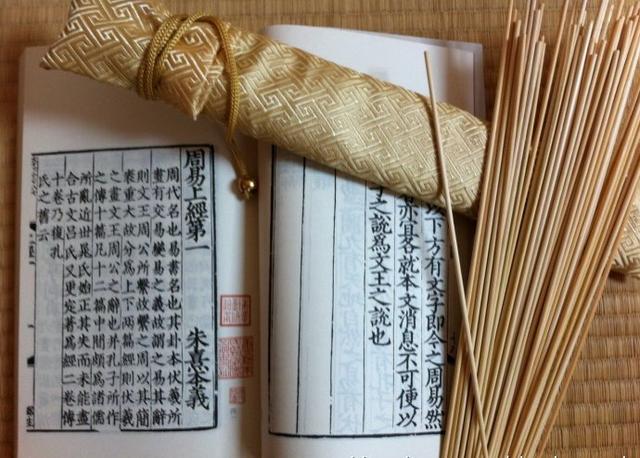 下方有文字即今之周易然
亦宜各就本文消息不可便以
之說爲文王之說也
周易上經第一 朱熹本義
周代名也易書名也其卦本伏羲所
畫有交易變易之義故謂之易其辭
則文王周公所繫故繫之周以其簡
袠重大故分爲上下兩篇經則伏羲
之畫文王周公之辭也并孔子所作
之傳十篇凡十二篇中間頗爲諸儒
所亂近世晁氏始正其失而未能盡
合古文呂氏又更定著爲經二卷傳
十卷乃復孔
氏之舊云